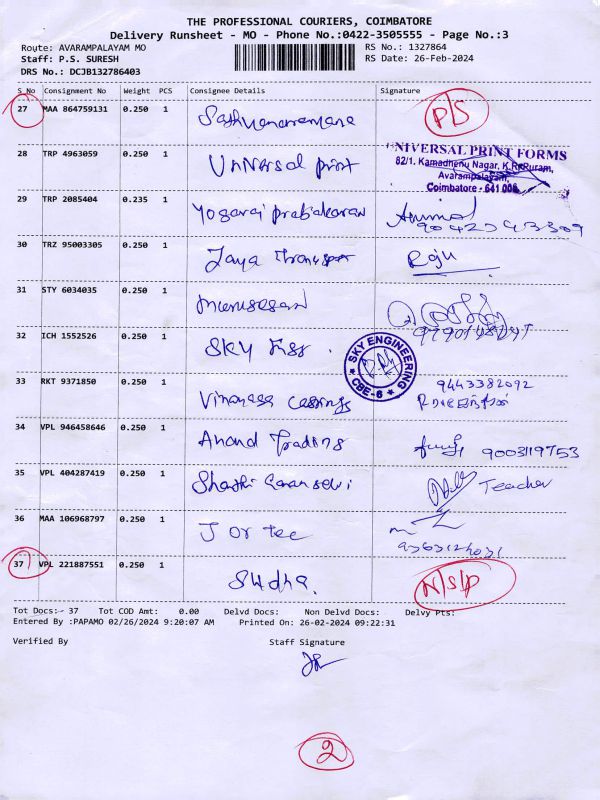 THE PROFESSIONAL COURIERS, COIMBATORE
Delivery Runsheet - MO - Phone No.:0422-3505555 - Page No.:3
Route: AVARAMPALAYAM MO
RS No.: 1327864
Staff: P.S. SURESH
RS Date: 26-Feb-2024
DRS No.: DCJB132786403
S No Consignment No Weight PCS Consignee Details Signature
27 MAA 864759131 0.250 1 Sathyanarayana P/S
28 TRP 4963059 0.250 1 Universal print
UNIVERSAL PRINT FORMS
82/1. Kamadhenu Nagar, K.R.Puram,
Avarampalayam,
Coimbatore - 641 006
29 TRP 2085404 0.235 1 Yogaraj prabakaran
30 TRZ 95003305 0.250 1 Jaya Raju
31 STY 6034035 0.250 1 murugesan
32 ICH 1552526 0.250 1 SKY
SKY ENGINEERING
CBE-6
33 RKT 9371850 0.250 1 Vinayaga 9443382092
34 VPL 946458646 0.250 1 Anand Trading 9003119753
35 VPL 404287419 0.250 1 Shanthi Teacher
36 MAA 106968797 0.250 1 J or tec
37 VPL 221887551 0.250 1 Sudha. N/S/P
Tot Docs:- 37 Tot COD Amt: 0.00 Delvd Docs: Non Delvd Docs: Delvy Pts:
Entered By :PAPAMO 02/26/2024 9:20:07 AM Printed On: 26-02-2024 09:22:31
Verified By Staff Signature
2